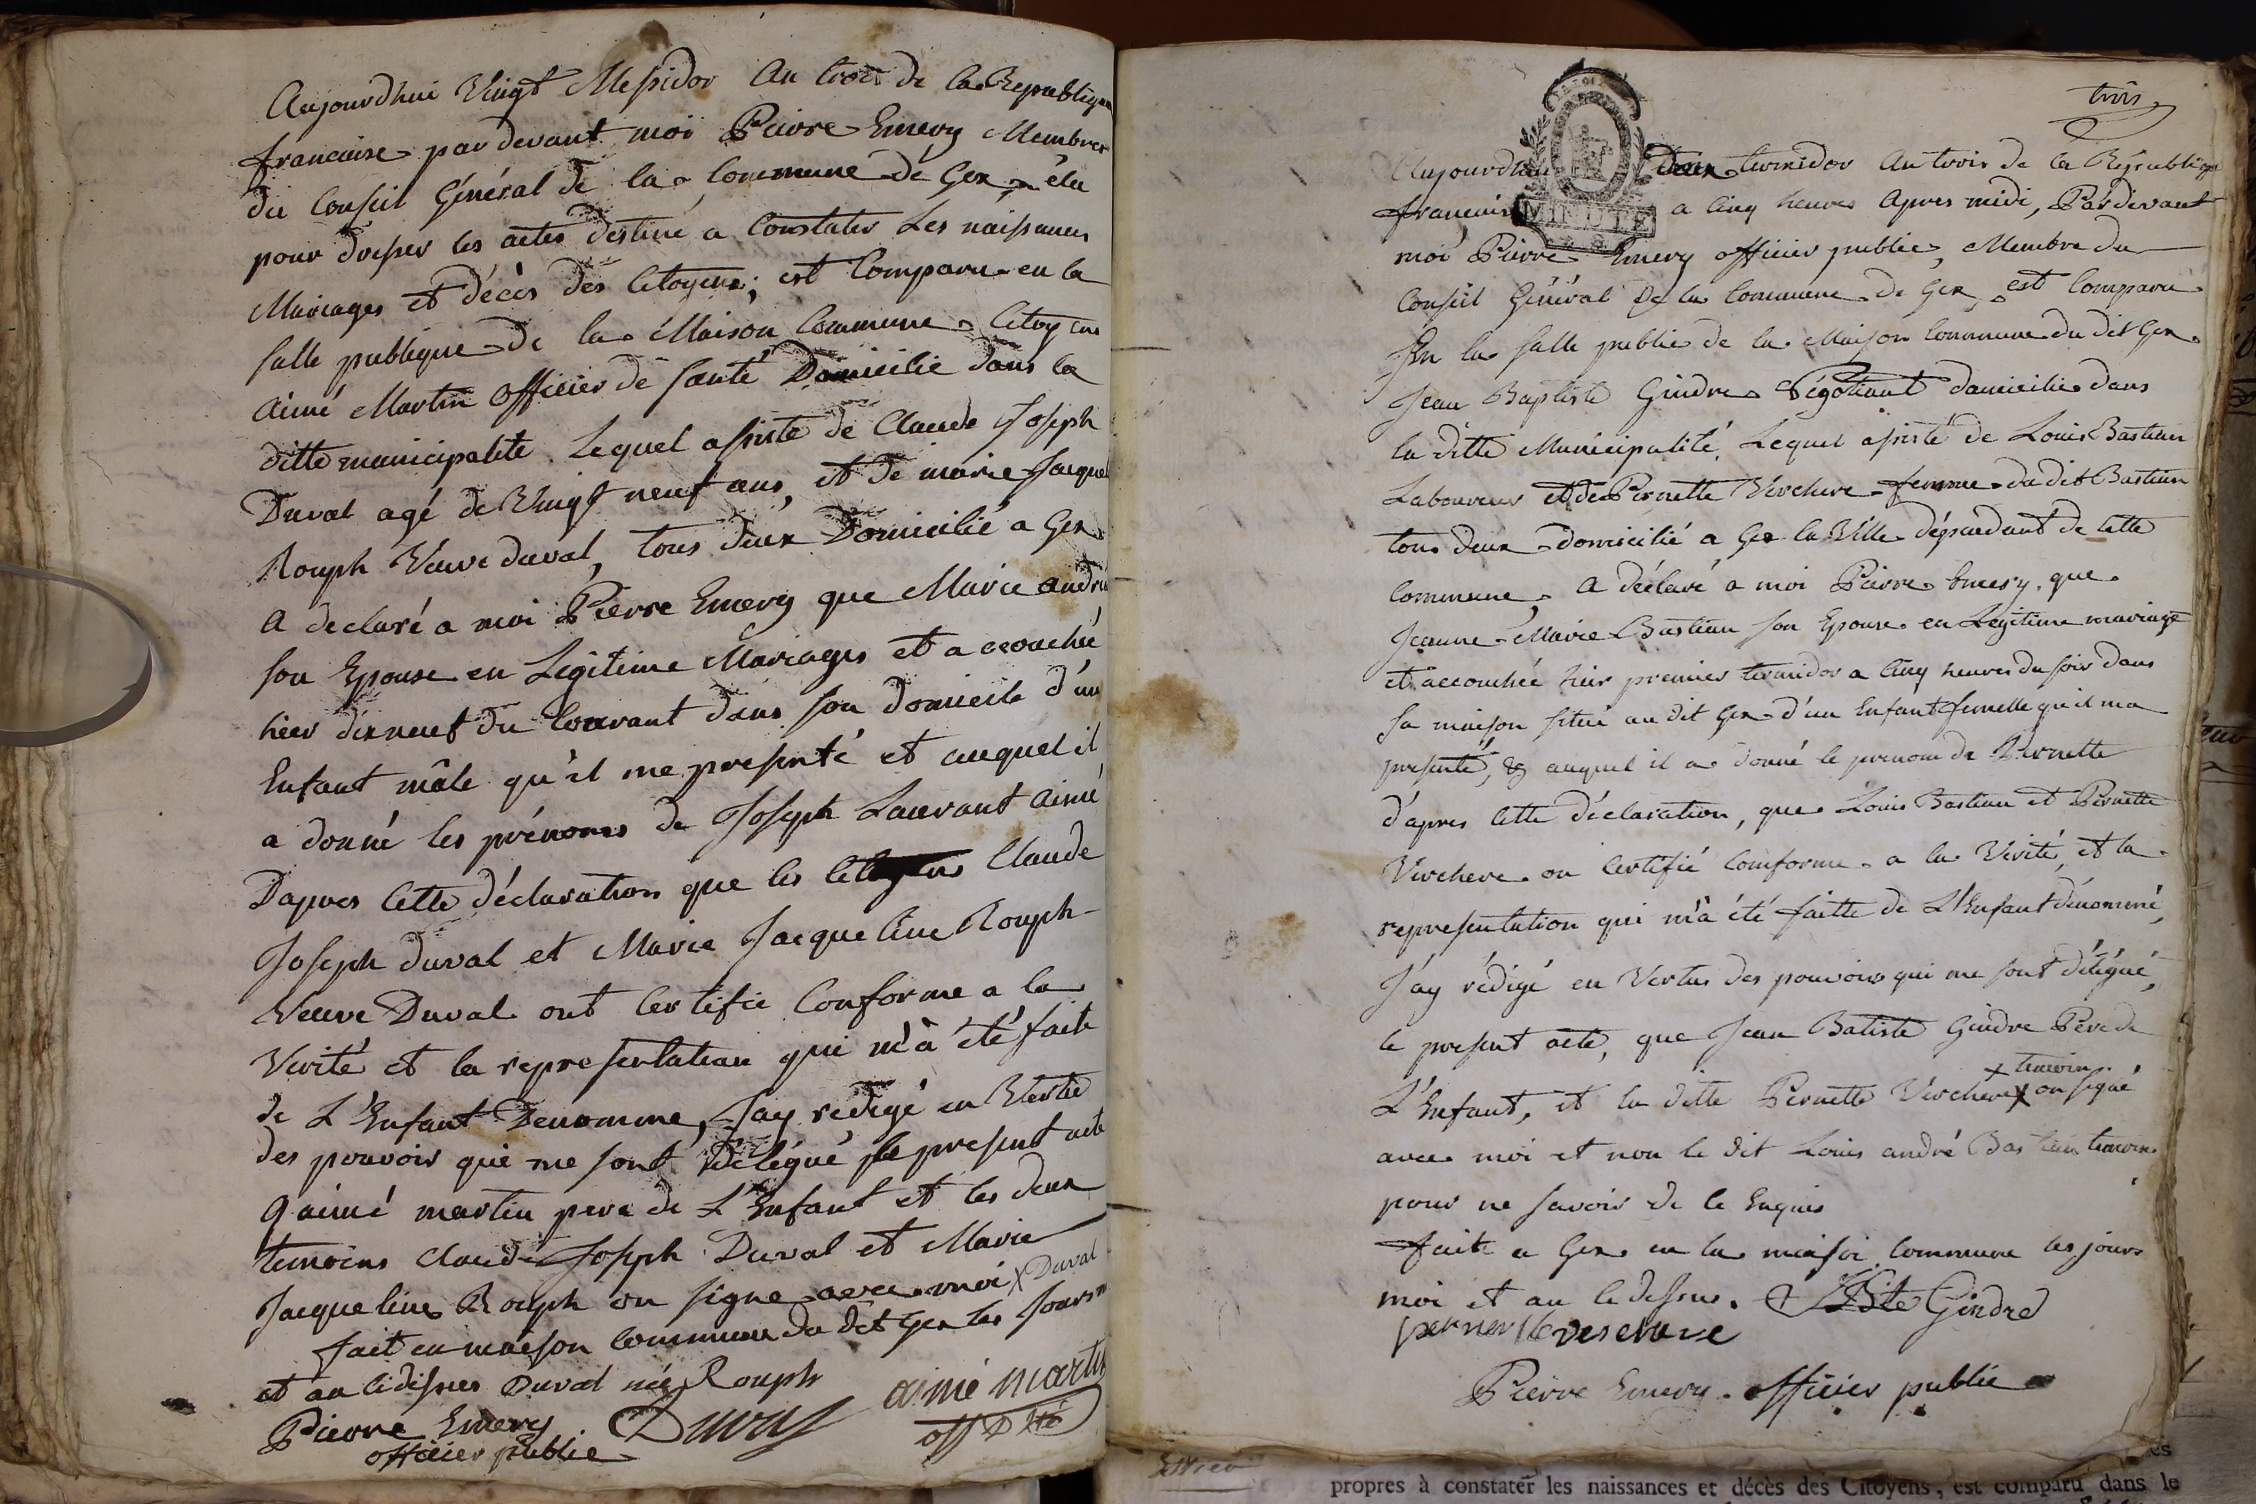 Aujourdhui Vingt Messidor An trois de la Republique
francaise par devant moi Pierre Emery Membre
du Conseil Général de la Commune de Gex élu
pour dresser les actes destiné a Constater Les naissances
Mariages et décès des Citoyens; est Comparu en la
salle publique de la Maison Commune Citoyens
aimé Martin officier de santé Domicilié dans la
ditte municipalite Lequel assisté de Claude Joseph
Duval agé de Vingt neuf ans, et de marie Jacque
Rouph Veuve duval, tous deux Domicilié a Gex
A declaré a moi Pierre Emery que Marie andri
son Epouse en Legitime Mariages et accouchée
hier dixneuf du Courant dans son domicile d'un
Enfant mâle qu'il me presenté et auquel il
a donné les prénoms de Joseph Laurant aimé
Dapres Cette déclaration que les Citoyens Claude
Joseph duval et Marie Jacqueline Rouph
Veuve Duval ont Certifie Conforme a la
Verité et la representation qui m'à été faite
de L'Enfant Denomme, Jay redigé en Vertu
des pouvoir qui me sont délégué le present acte
q aimé martin pere de L'Enfant et les deux
temoins claude Joseph Duval et Marie
Jacqueline Rouph on signe avec moi x Duval
fait en maison Commune du dit Gex les Jours m
et an cidessus Duval née Rouph
aimé martin
Pierre Emery
Duval
off D sté
officier publie
trois
Aujourdhui deux termidor An trois de la Républiq
francais a Cinq heures Apres midi, Pardevant
MINUTE
moi Pierre Emery officier publie, Membre du
Conseil Général De la Commune de Gex, est Comparu
En la salle publie de la Maison Commune du dit Gex
Jean Baptiste Gindre Négotiant domicilié dans
la ditte Municipalité, Lequel assisté de Louis Bastian
Laboureur et de Pernette Verchere femme du dit Bastian
tous deux domicilié a Gex la Ville dépendant de cette
Commune, A déclaré a moi Pierre Emery, que
Jeanne Marie Bastian son Epouse en Legitime mariage
et accouchée hier premier termidor a Cinq heures du soir dans
sa maison situé au dit Gex d'un Enfant femelle qu'il ma
presenté, & auquel il a donné le prenom de Pernette
d'apres Cette déclaration, que Louis Bastian et Pernette
Verchere on Certifié Conforme a la Verité, et la
representation qui m'à été faitte de L'Enfant dénommé,
J'ay rédigé en Vertus des pouvoirs qui me sont délégué,
le present acte, que Jean Batiste Gindre Père de
x temoin
L'Enfant, et la ditte Pernette Verchere x on signé
avec moi et non le dit Louis andré Bastian temoin
pour ne savoir de ce Enquis
faite a Gex en la maison Commune les jours
moi et an Cidessus. J Bte Gindre
pernette verchere
Pierre Emery officier publie
propres à constater les naissances et décès des Citoyens, est comparu dans le